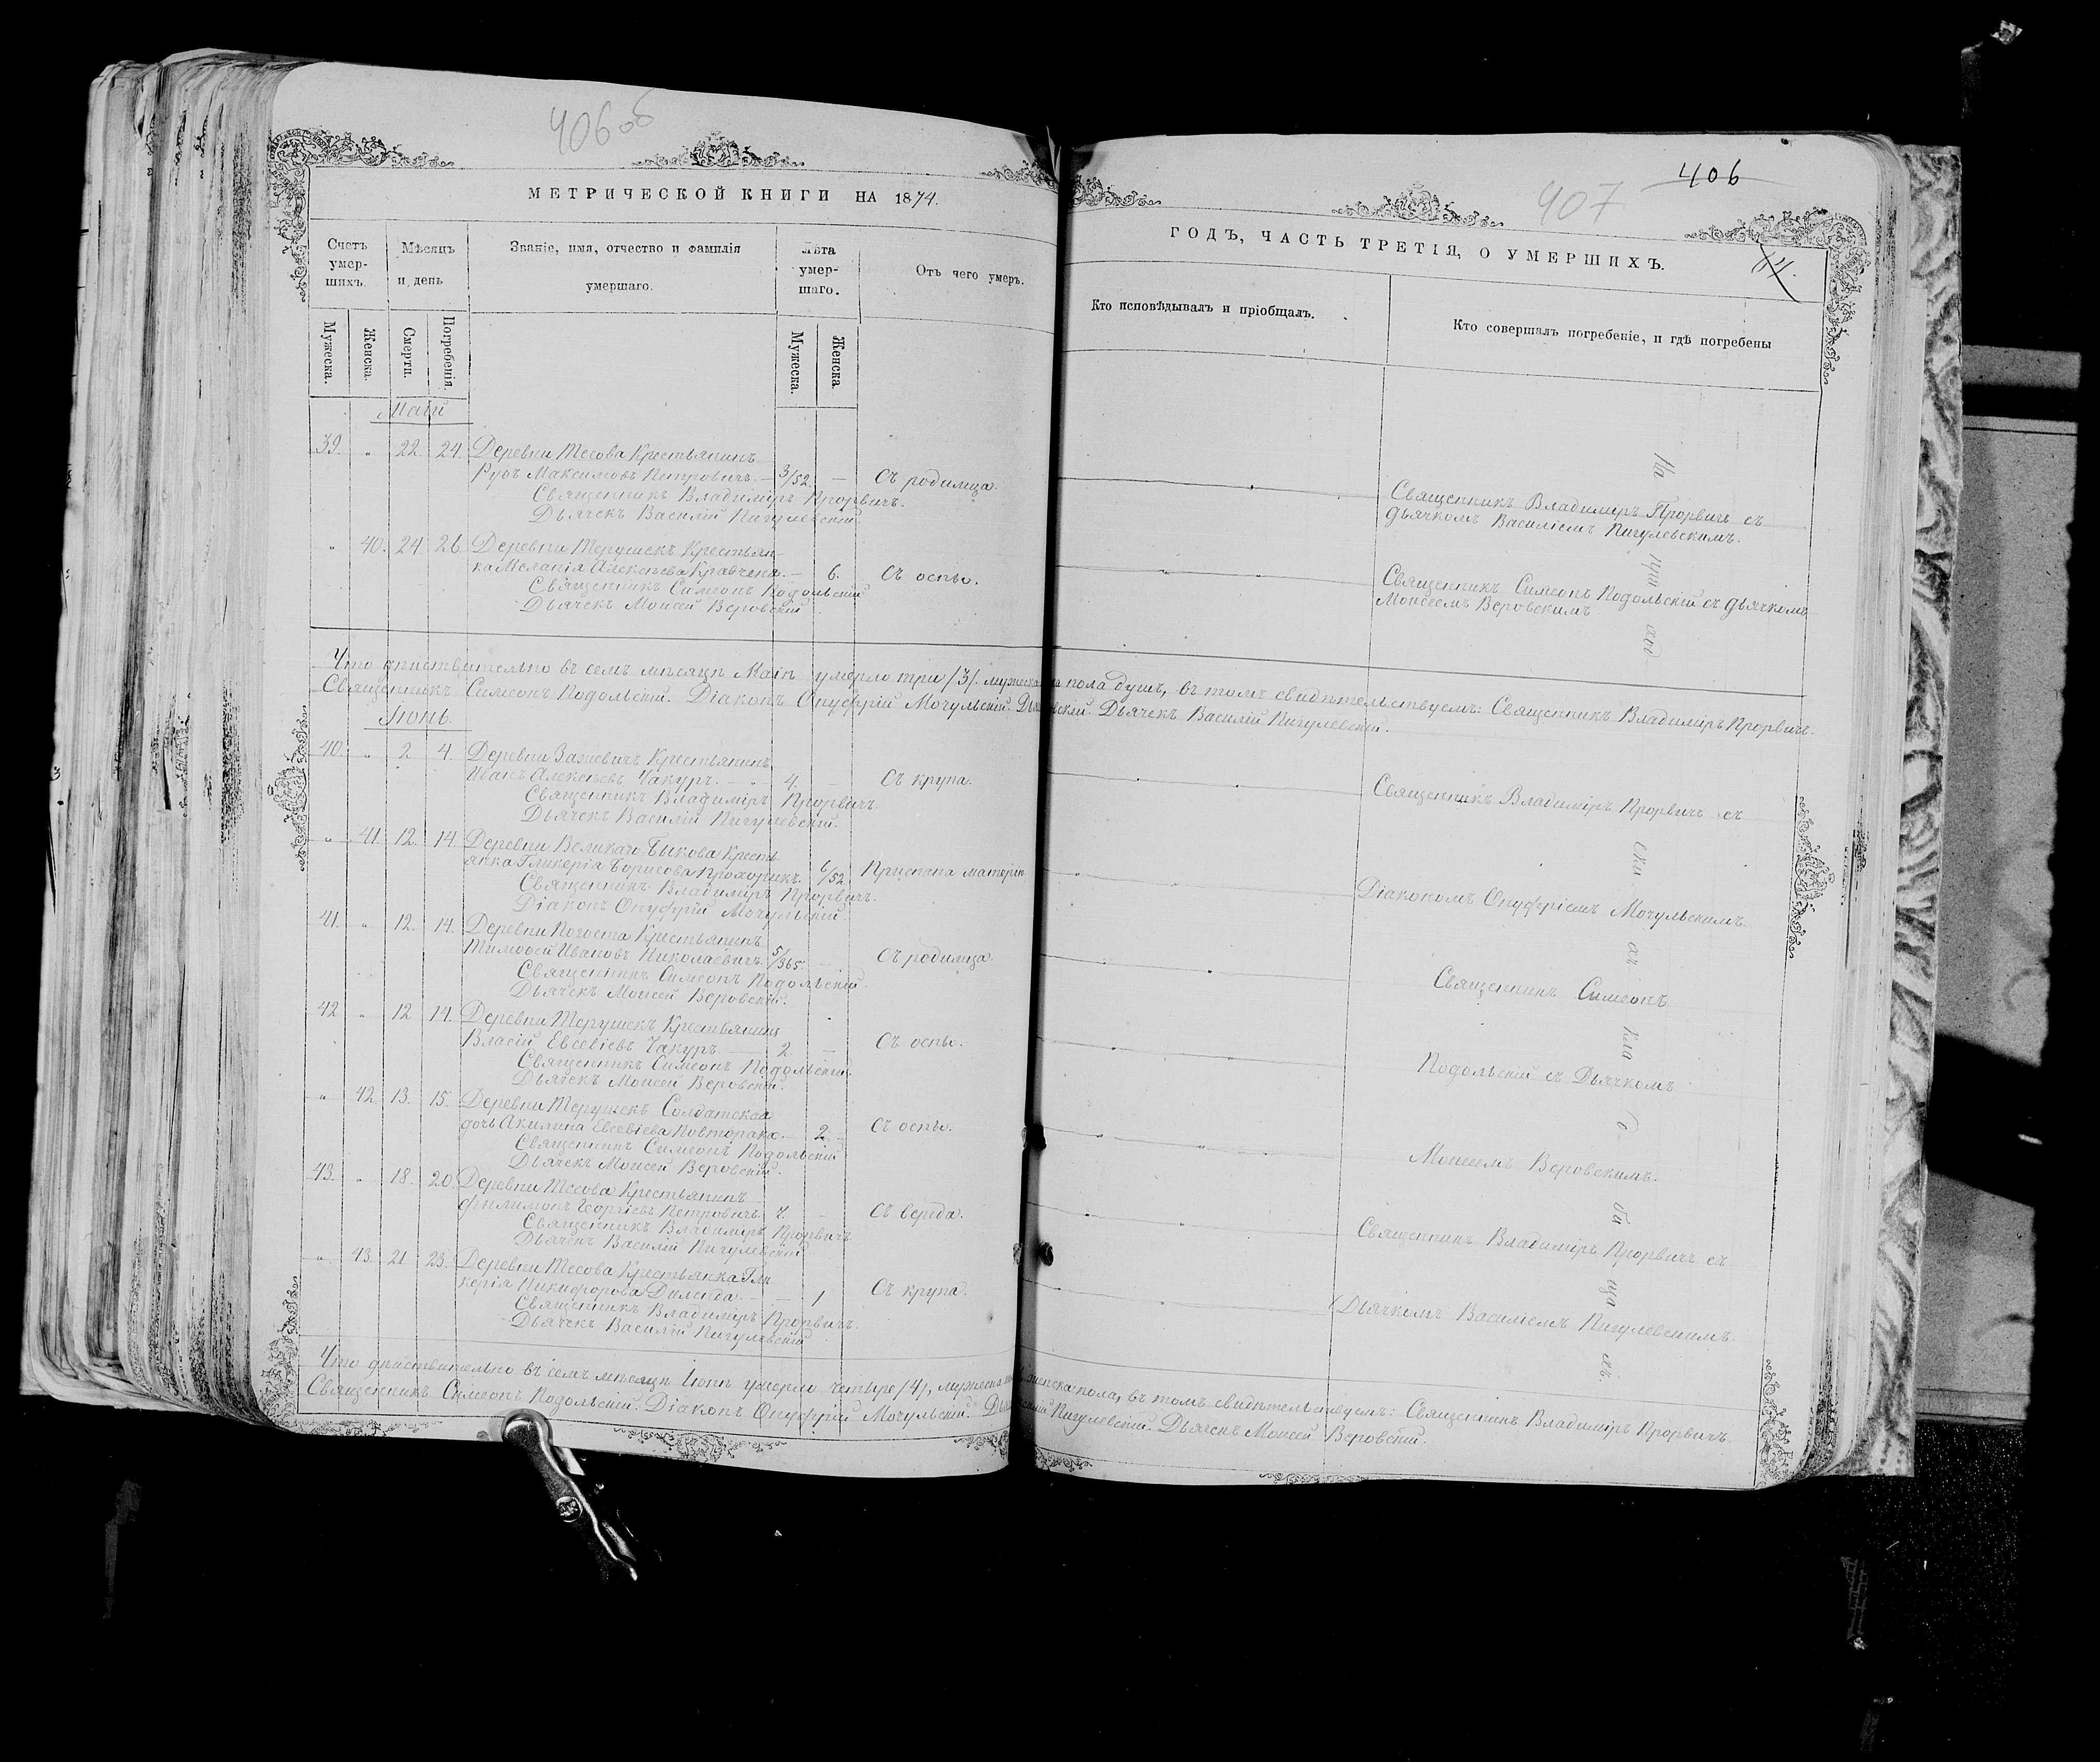 406об
МЕТРИЧЕСКОЙ КНИГИ НА 1874.
Счетъ умер- шихъ.
Мѣсяцъ и день
Званіе, имя, отчество и фамилія умершаго.
Лѣта умер- шаго.
Отъ чего умеръ.
Мужеска.
Женска.
Смерти.
Погребенія.
Мужеска.
Женска.
Маій
39. " 22. 24. Деревни Тесова Крестьянинъ
Максимовъ Петровичъ. — 3/52. — Съ родимца.
Священникъ Владиміръ Прорвичъ.
Дьячекъ Василій Пигулевскій
" 40. 24. 26. Деревни Терушекъ Крестьян-
ка Меланія Алексѣева Кравчена. — 6. Съ оспы.
Священникъ Симеонъ Подольскій
Дьячекъ Моисей Веровскій
Что дѣйствительно въ семъ мѣсяцѣ Маіѣ умерло три /3/. мужеска
Священникъ Симеонъ Подольскій. Діаконъ Онуфрій Мочульскій.
Іюнь.
40. " 2. 4. Деревни Зажевичъ Крестьянинъ
Иванъ Алексѣевъ Чакуръ. — " 4. — Съ крупа.
Священникъ Владиміръ Прорвичъ.
Дьячекъ Василій Пигулевскій.
" 41. 12. 14. Деревни Великаго Быкова Кресть
янка Гликерія Борисова Прохорикъ. 6/52 Приспана матерію
Священникъ Владиміръ Прорвичъ.
Діаконъ Онуфрій Мочульскій
41. " 12. 14. Деревни Погоста Крестьянинъ
Тимоѳей Ивановъ Николаевичъ. 5/365 — Съ родимца.
Священникъ Симеонъ Подольскій.
Дьячекъ Моисей Веровскій.
42 " 12 14. Деревни Терушекъ Крестьянинъ
Власій Евсевіевъ Чакуръ. — 2. — Съ оспы.
Священникъ Симеонъ Подольскій.
Дьячекъ Моисей Веровскій.
" 42. 13. 15. Деревни Терушекъ Солдатская
дочь Акилина Евсевіева Повторака. — 2. Съ оспы.
Священникъ Симеонъ Подольскій
Дьячекъ Моисей Веровскій.
43. " 18. 20. Деревни Тесова Крестьянинъ
Филимонъ Георгіевъ Петровичъ. Съ вереда.
Священникъ Владиміръ Прорвичъ
Дьячекъ Василій Пигулевскій
" 43 21 23. Деревни Тесова Крестьянка Гли
керія Никифорова Диленда. — — 1 Съ крупа.
Священникъ Владиміръ Прорвичъ.
Дьячекъ Василій Пигулевскій
Что дѣйствительно въ семъ мѣсяцѣ Іюнѣ умерло четыре /4/, мужеска
Священникъ Симеонъ Подольскій. Діаконъ Онуфрій Мочульскій.
406
407
ГОДЪ, ЧАСТЬ ТРЕТІЯ, О УМЕРШИХЪ.
Кто исповѣдывалъ и пріобщалъ.
Кто совершалъ погребеніе, и гдѣ погребены
Священникъ Владиміръ Прорвичъ съ
дьячкомъ Василіемъ Пигулевскимъ.
Священникъ Симеонъ Подольскій съ дьячкомъ
Моисеемъ Веровскимъ
пола душъ, въ томъ свидѣтельствуемъ: Священникъ Владиміръ Прорвичъ.
Дьячекъ Василій Пигулевскій.
Священникъ Владиміръ Прорвичъ съ
Діакономъ Онуфріемъ Мочульскимъ.
Священникъ Симеонъ
Подольскій съ Дьячкомъ
Моисеемъ Веровскимъ.
Священникъ Владиміръ Прорвичъ съ
Дьячкомъ Василіемъ Пигулевскимъ.
На при ход ски хъ кла д би ща хъ.
женска пола, въ томъ свидѣтельствуемъ: Священникъ Владиміръ Прорвичъ.
Пигулевскій. Дьячекъ Моисей Веровскій.